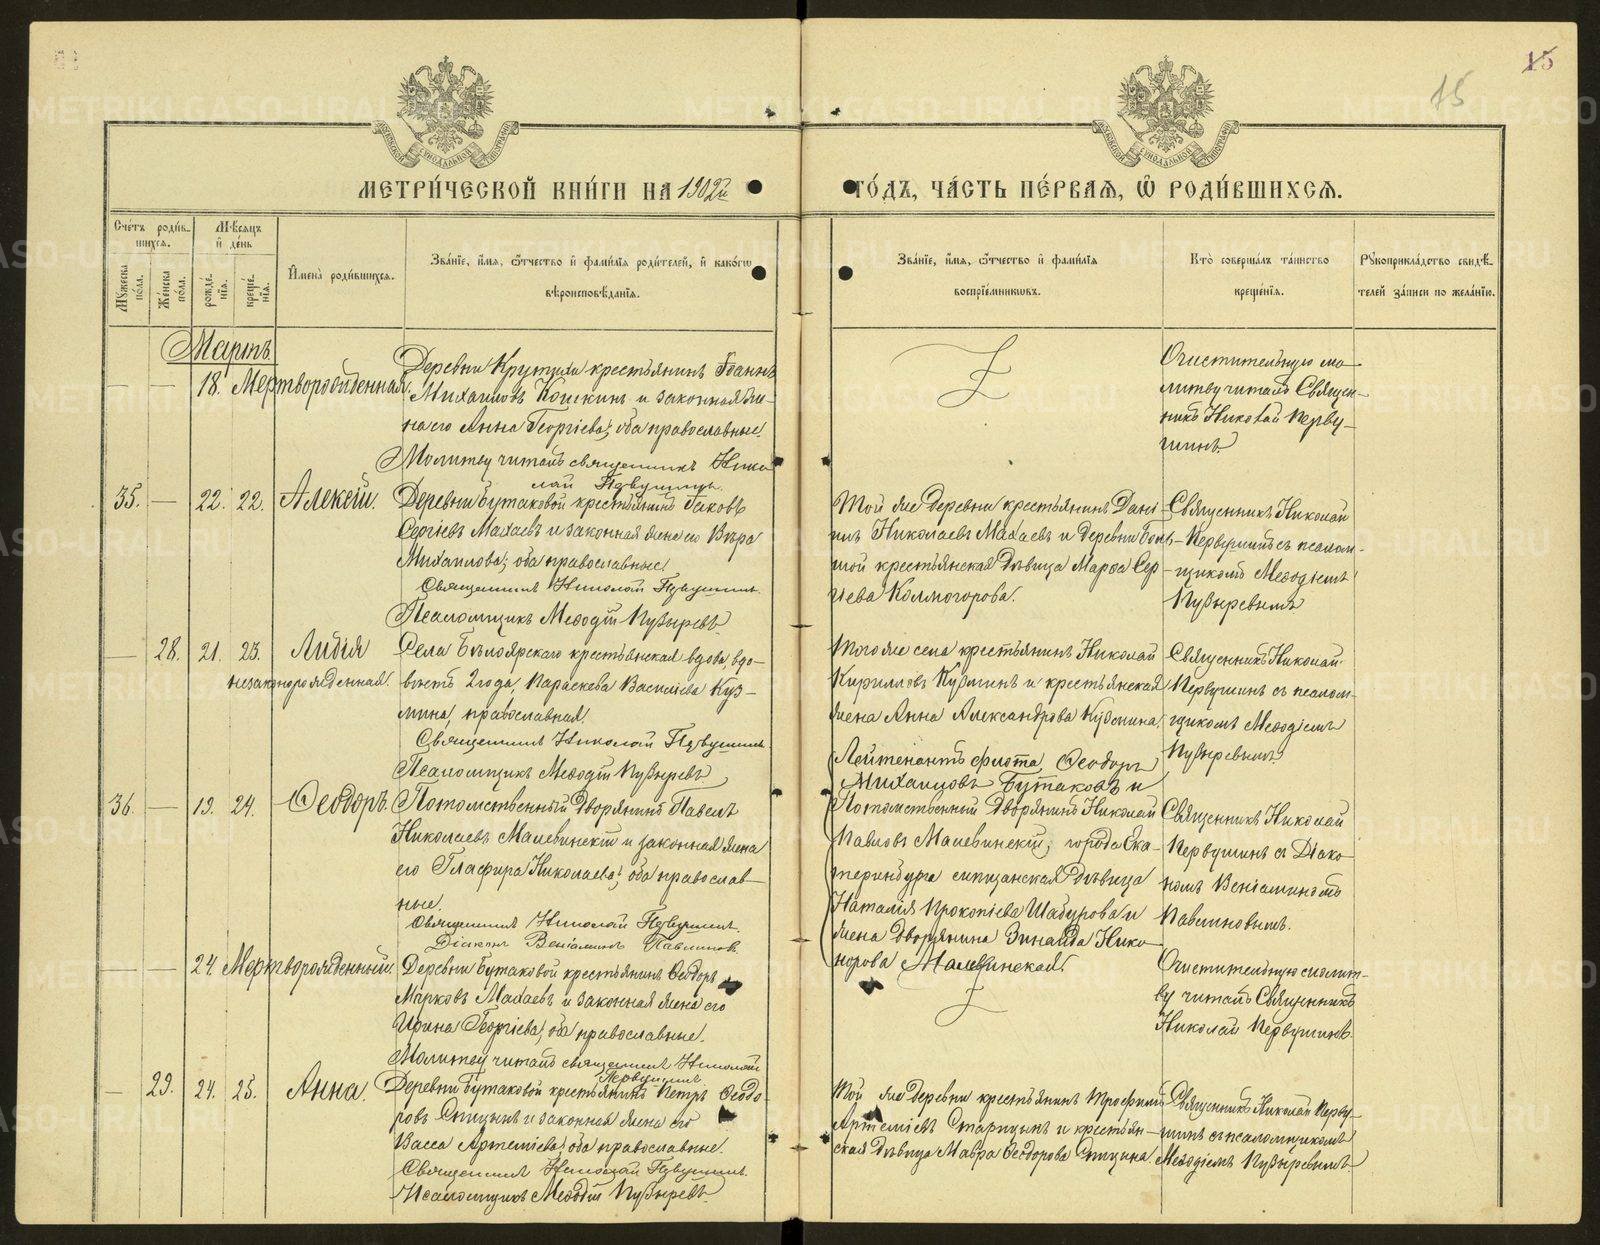 15
15
МЕТРИ́ЧЕСКОЙ КНИ́ГИ НА 1902й
ГО́ДЪ, ЧА́СТЬ ПЕ́РВАЯ, Ѿ РОДИ́ВШИХСЯ.
Сче́тъ роди́в-
шихся.
Му́жеска по́ла.
Же́нска по́ла.
Мѣ́сяцъ и де́нь
рожде́-нїя.
креще́-нїя.
И҆мена̀ роди́вшихся.
Зва́нїе, и҆́мя, ѻ҆́тчество и҆ фами́лїя роди́телей, и҆ како́гѡ
вѣроисповѣ́данїя.
Зва́нїе, и҆́мя, ѻ҆́тчество и҆ фами́лїя
воспрїе́мниковъ.
Кто̀ соверша́лъ та́инство
креще́нїя.
Рꙋкоприкла́дство свидѣ́-
телей за́писи по жела́нїю.
Мартъ.
— — 18. Мертворожденная.
Деревни Крутихи крестьянинъ Іоаннъ
Михаиловъ Кошкинъ и законная же-
на его Анна Георгіева; оба православные.
Молитву читалъ священникъ Нико
лай Первушинъ.
Очистительную мо-
литву читалъ Священ-
никъ Николай Перву-
шинъ.
35. — 22. 22. Алексій.
Деревни Бутаковой крестьянинъ Іаковъ
Сергіевъ Махаевъ и законная жена его Вѣра
Михаилова; оба православные.
Священникъ Николай Первушинъ.
Псаломщикъ Меѳодій Пузыревъ
Той же деревни крестьянинъ Дані-
илъ Николаевъ Махаевъ и деревни Боль-
шой крестьянская дѣвица Марѳа Сер-
гіева Колмогорова.
Священникъ Николай
Первушинъ съ псалом-
щикомъ Меѳодіемъ
Пузыревымъ
— 28. 21. 23. Лидія
незаконнорожденная.
Села Бѣлоярскаго крестьянская вдова, вдо-
вѣетъ 2 года, Параскева Василіева Куз-
мина, православная.
Священникъ Николай Первушинъ.
Псаломщикъ Меѳодій Пузыревъ
Того же села крестьянинъ Николай
Кирилловъ Кузминъ и крестьянская
жена Анна Александрова Кузмина.
Священникъ Николай
Первушинъ съ псалом-
щикомъ Меѳодіемъ
Пузыревымъ
36. — 19. 24. Ѳеодоръ.
Потомственный дворянинъ Павелъ
Николаевъ Малевинскій и законная жена
его Глафира Николаева; оба православ-
ные.
Священникъ Николай Первушинъ.
Діаконъ Веніаминъ Павлиновъ.
Лейтенантъ флота Ѳеодоръ
Михаиловъ Бутаковъ и
Потомственный дворянинъ Николай
Павловъ Малевинскій; города Ека-
теринбурга мещанская дѣвица
Наталія Прокопіева Шабурова и
жена дворянина Зинаида Нико-
норова Малевинская.
Священникъ Николай
Первушинъ съ Діако-
номъ Веніаминомъ
Павлиновымъ.
— — 24. Мертворожденный.
Деревни Бутаковой крестьянинъ Ѳеодоръ
Марковъ Махаевъ и законная жена его
Ирина Георгіева; оба православные.
Молитву читалъ священникъ Николай
Первушинъ
Очистительную молит-
ву читалъ Священникъ
Николай Первушинъ.
— 29. 24. 25. Анна.
Деревни Бутаковой крестьянинъ Петръ Ѳеодо-
ровъ Спицынъ и законная жена его
Васса Артеміева; оба православные.
Священникъ Николай Первушинъ.
Псаломщикъ Меѳодій Пузыревъ
Той же деревни крестьянинъ Трофимъ
Артеміевъ Старицынъ и крестьян-
ская дѣвица Мавра Ѳеодорова Спицына.
Священникъ Николай Перву-
шинъ съ псаломщикомъ
Меѳодіемъ Пузыревымъ